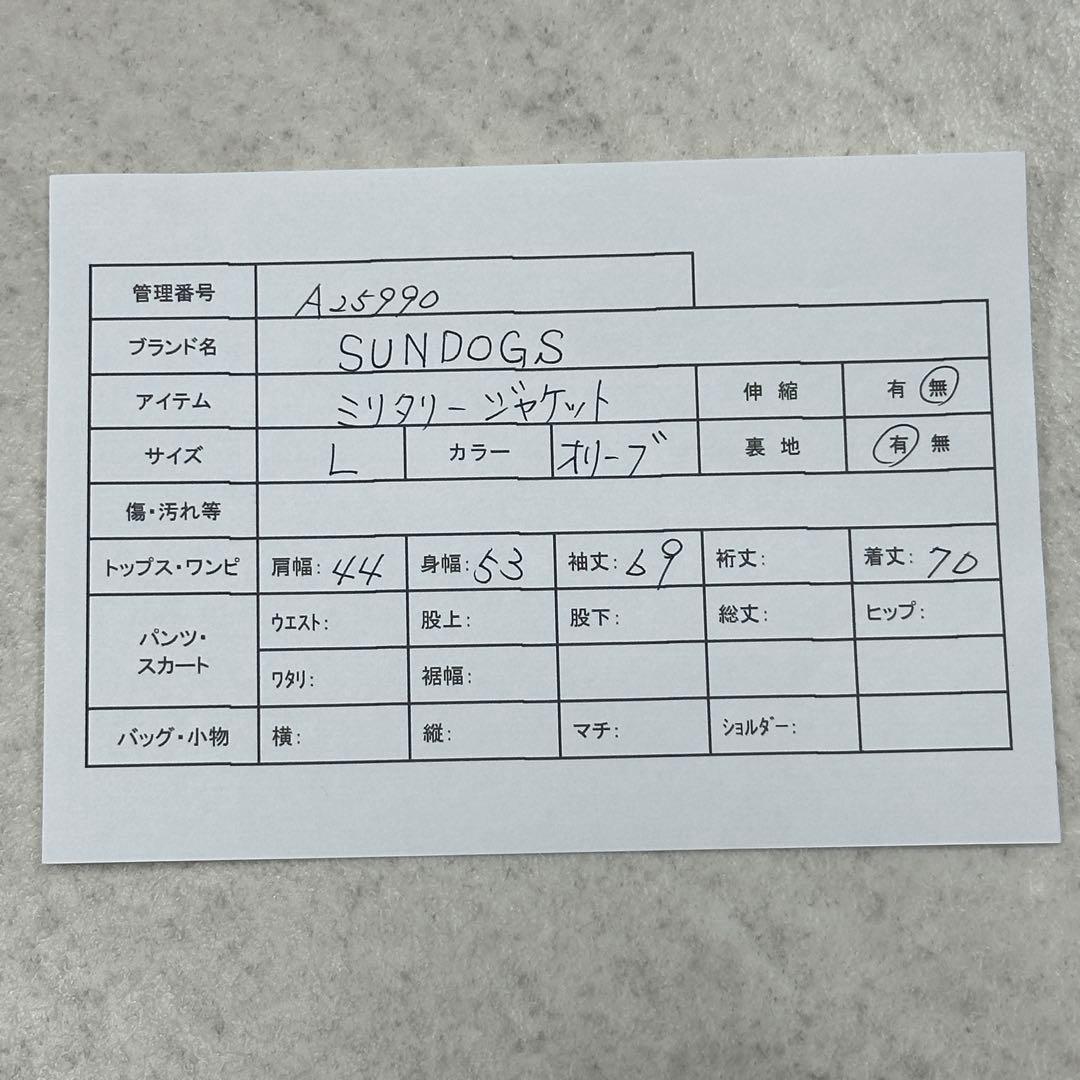 管理番号 A25990
ブランド名 SUNDOGS
アイテム ミリタリージャケット 伸縮 有 無
サイズ L カラー オリーブ 裏地 有 無
傷・汚れ等
トップス・ワンピ 肩幅: 44 身幅: 53 袖丈: 69 裄丈: 着丈: 70
パンツ・スカート ウエスト: 股上: 股下: 総丈: ヒップ:
ワタリ: 裾幅:
バッグ・小物 横: 縦: マチ: ショルダー: